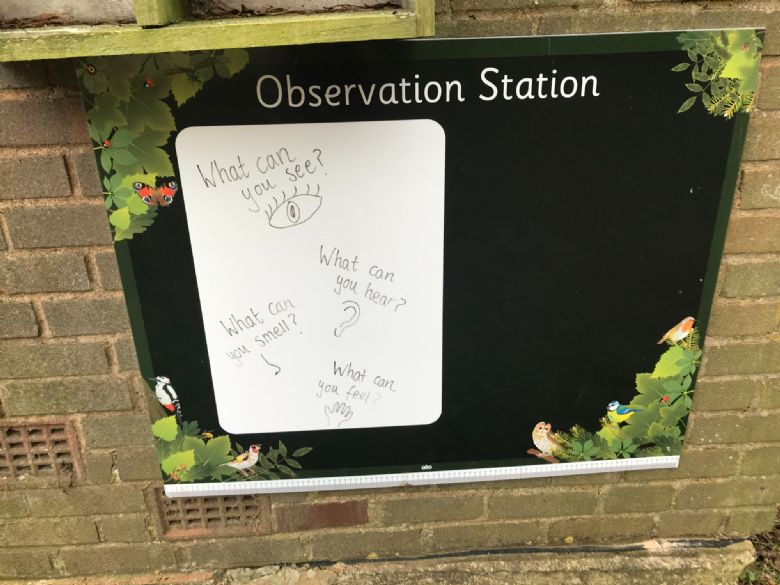 Observation Station
What can
you see?
What can
you hear?
What can
you smell?
What can
you feel?